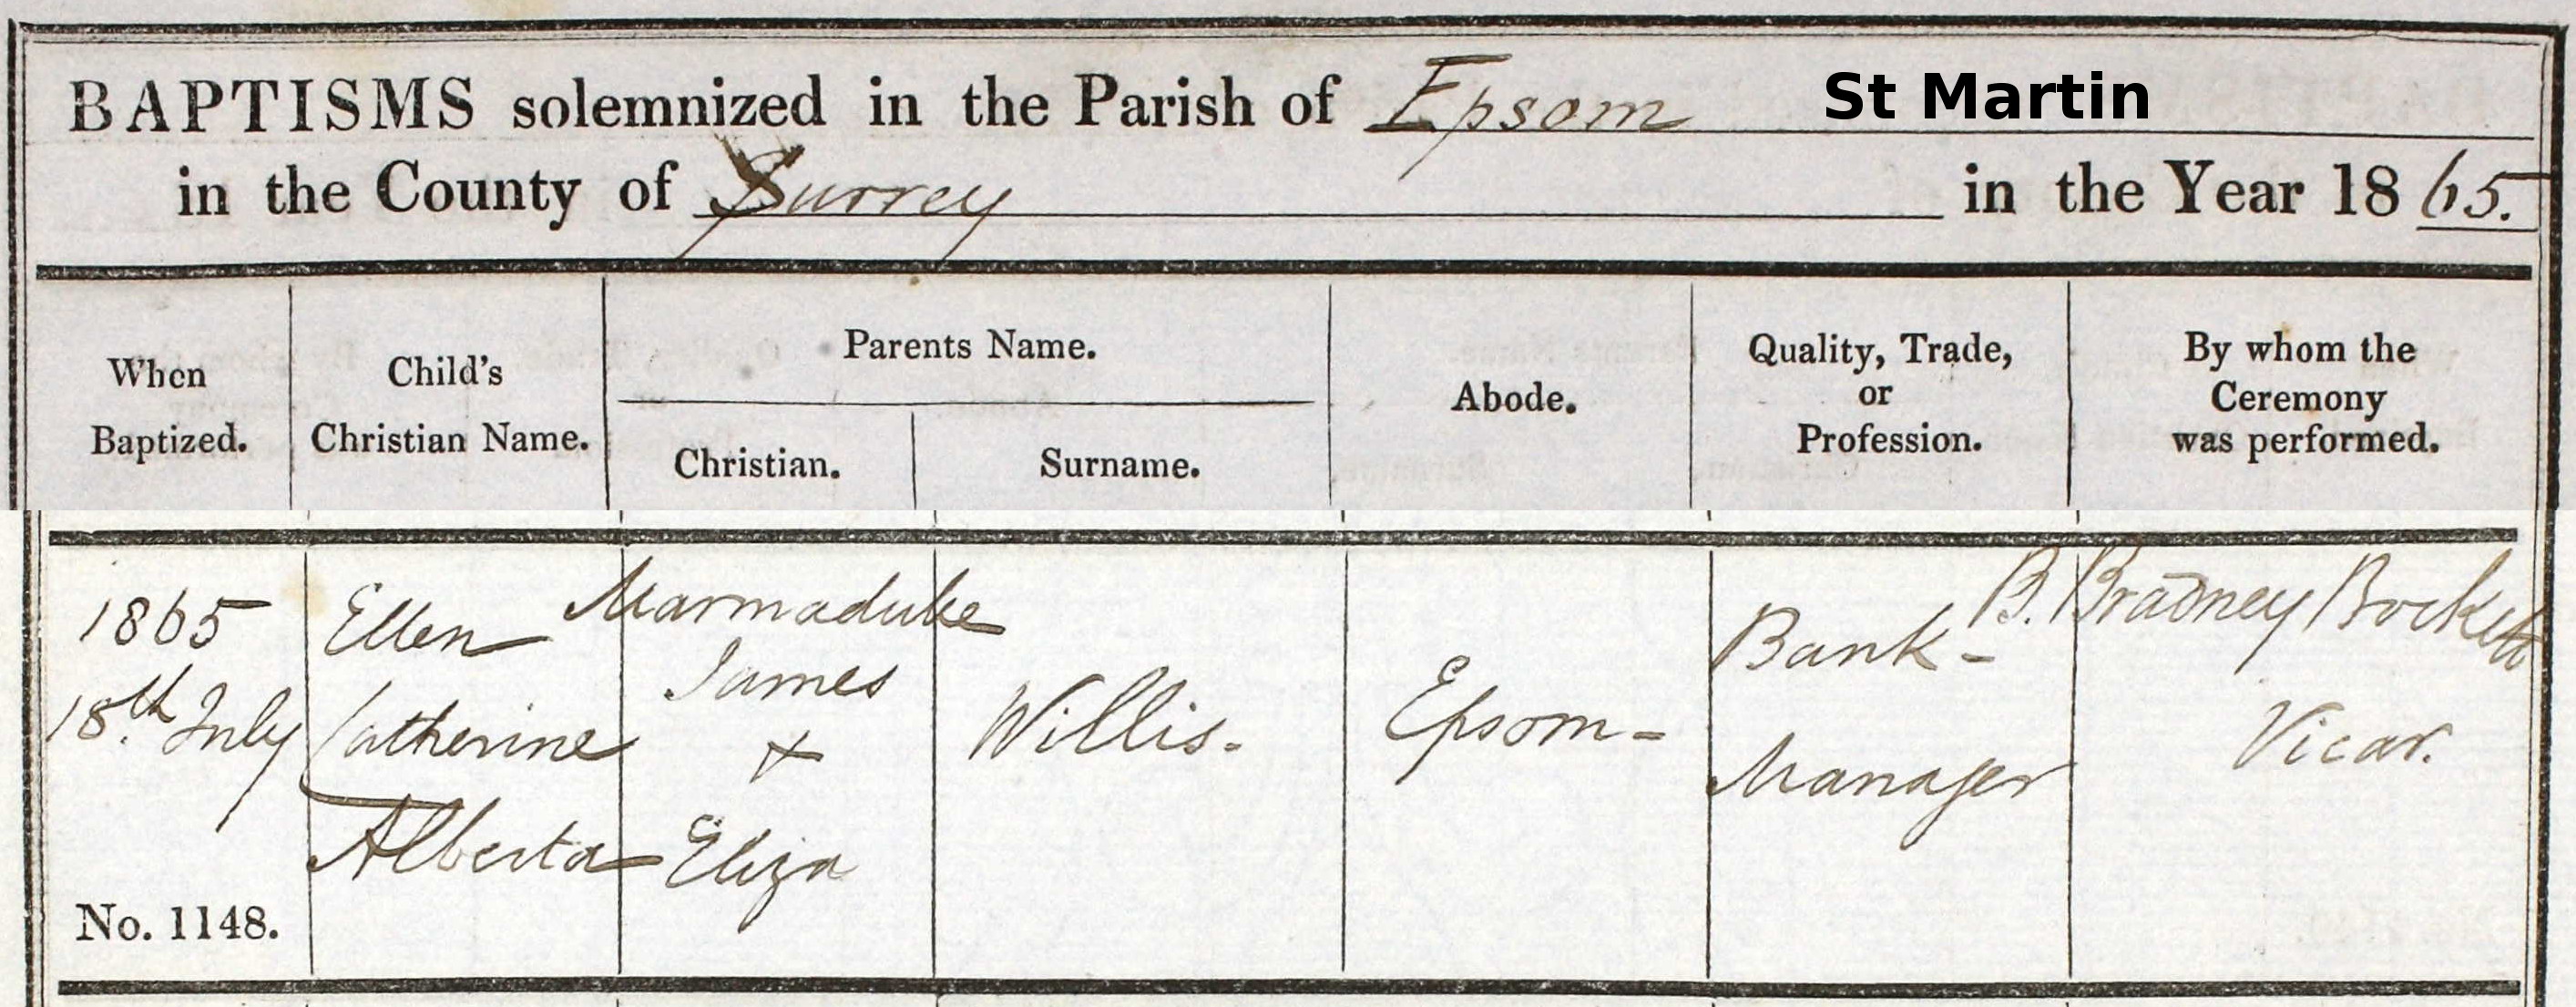 BAPTISMS solemnized in the Parish of Epsom St Martin
in the County of Surrey in the Year 1865.
When Baptized.
Child's Christian Name.
Parents Name.
Christian.
Surname.
Abode.
Quality, Trade, or Profession.
By whom the Ceremony was performed.
1865
18th July
No. 1148.
Ellen
Catherine
Alberta
Marmaduke
James
+
Eliza
Willis.
Epsom-
Bank-
Manager
B. Bradney Bockett
Vicar.